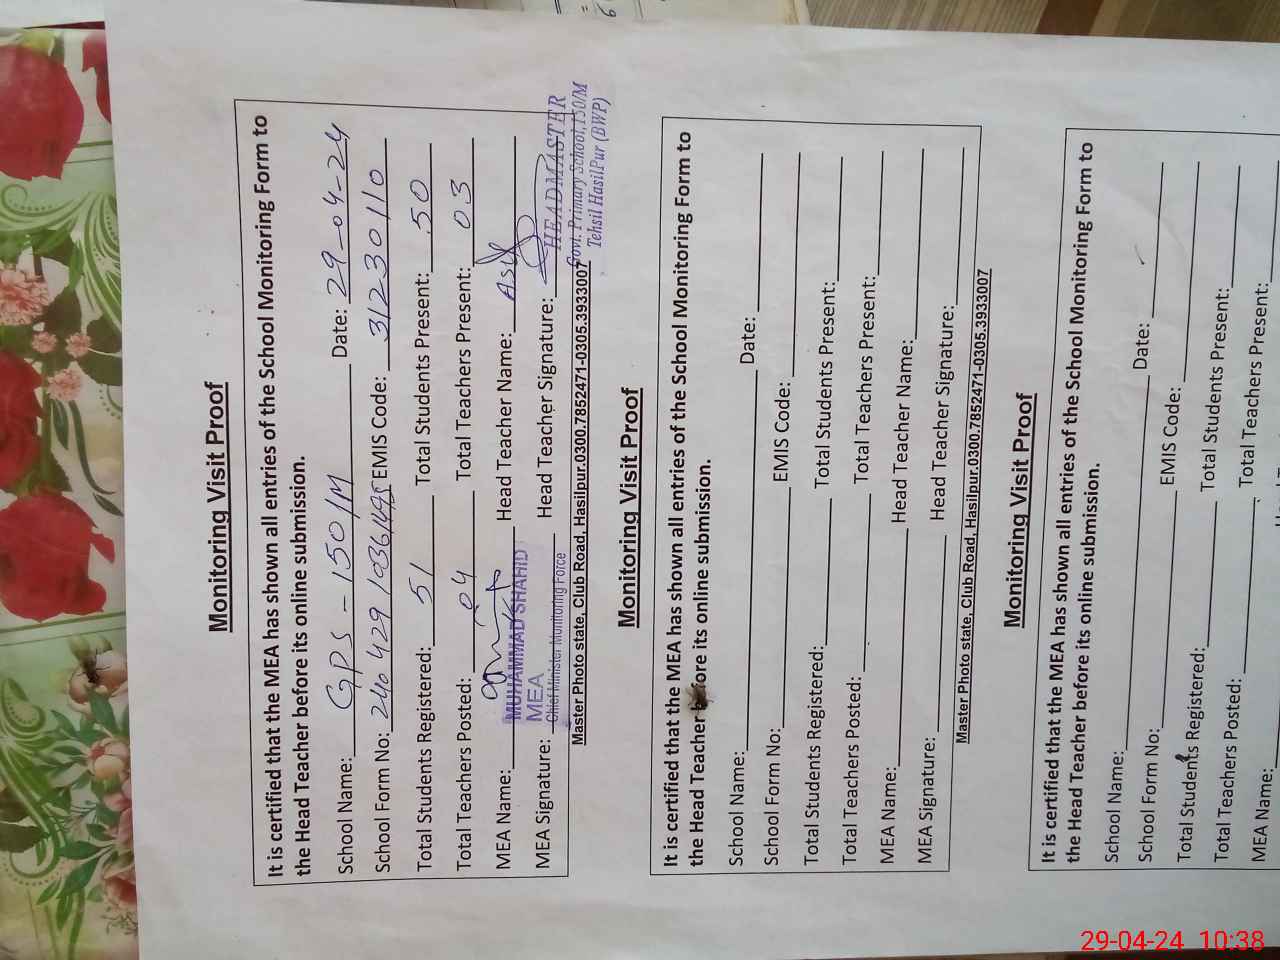 Monitoring Visit Proof
It is certified that the MEA has shown all entries of the School Monitoring Form to
the Head Teacher before its online submission.
School Name: GPS - 150/M Date: 29-04-24
School Form No: 240 429 10361495 EMIS Code: 31230110
Total Students Registered: 51 Total Students Present: 50
Total Teachers Posted: 04 Total Teachers Present: 03
MEA Name: MUHAMMAD SHAHID Head Teacher Name: Asif
MEA
MEA Signature: Chief Minister Monitoring Force Head Teacher Signature: HEADMASTER
Govt. Primary School, 150/M
Tehsil HasilPur (BWP)
Master Photo state, Club Road, Hasilpur.0300.7852471-0305.3933007
Monitoring Visit Proof
It is certified that the MEA has shown all entries of the School Monitoring Form to
the Head Teacher before its online submission.
School Name: Date:
School Form No: EMIS Code:
Total Students Registered: Total Students Present:
Total Teachers Posted: Total Teachers Present:
MEA Name: Head Teacher Name:
MEA Signature: Head Teacher Signature:
Master Photo state, Club Road, Hasilpur.0300.7852471-0305.3933007
Monitoring Visit Proof
It is certified that the MEA has shown all entries of the School Monitoring Form to
the Head Teacher before its online submission.
School Name: Date:
School Form No: EMIS Code:
Total Students Registered: Total Students Present:
Total Teachers Posted: Total Teachers Present:
MEA Name:
29-04-24 10:38